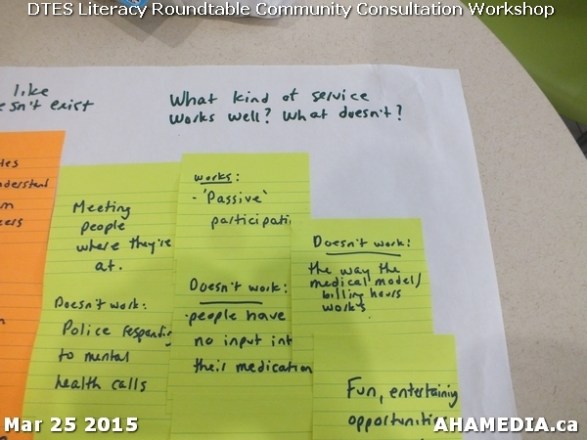 DTES Literacy Roundtable Community Consultation Workshop
like
esn't exist
What kind of service
works well? What doesn't?
Meeting
people
where they're
at.
Doesn't work:
Police
to mental
health calls
works:
- 'Passive'
participati
Doesn't work:
- people have
no input int
their medication
Doesn't work:
the way the
medical model/
billing hours
works.
Fun, entertaining
opportuniti
Mar 25 2015
AHAMEDIA.ca